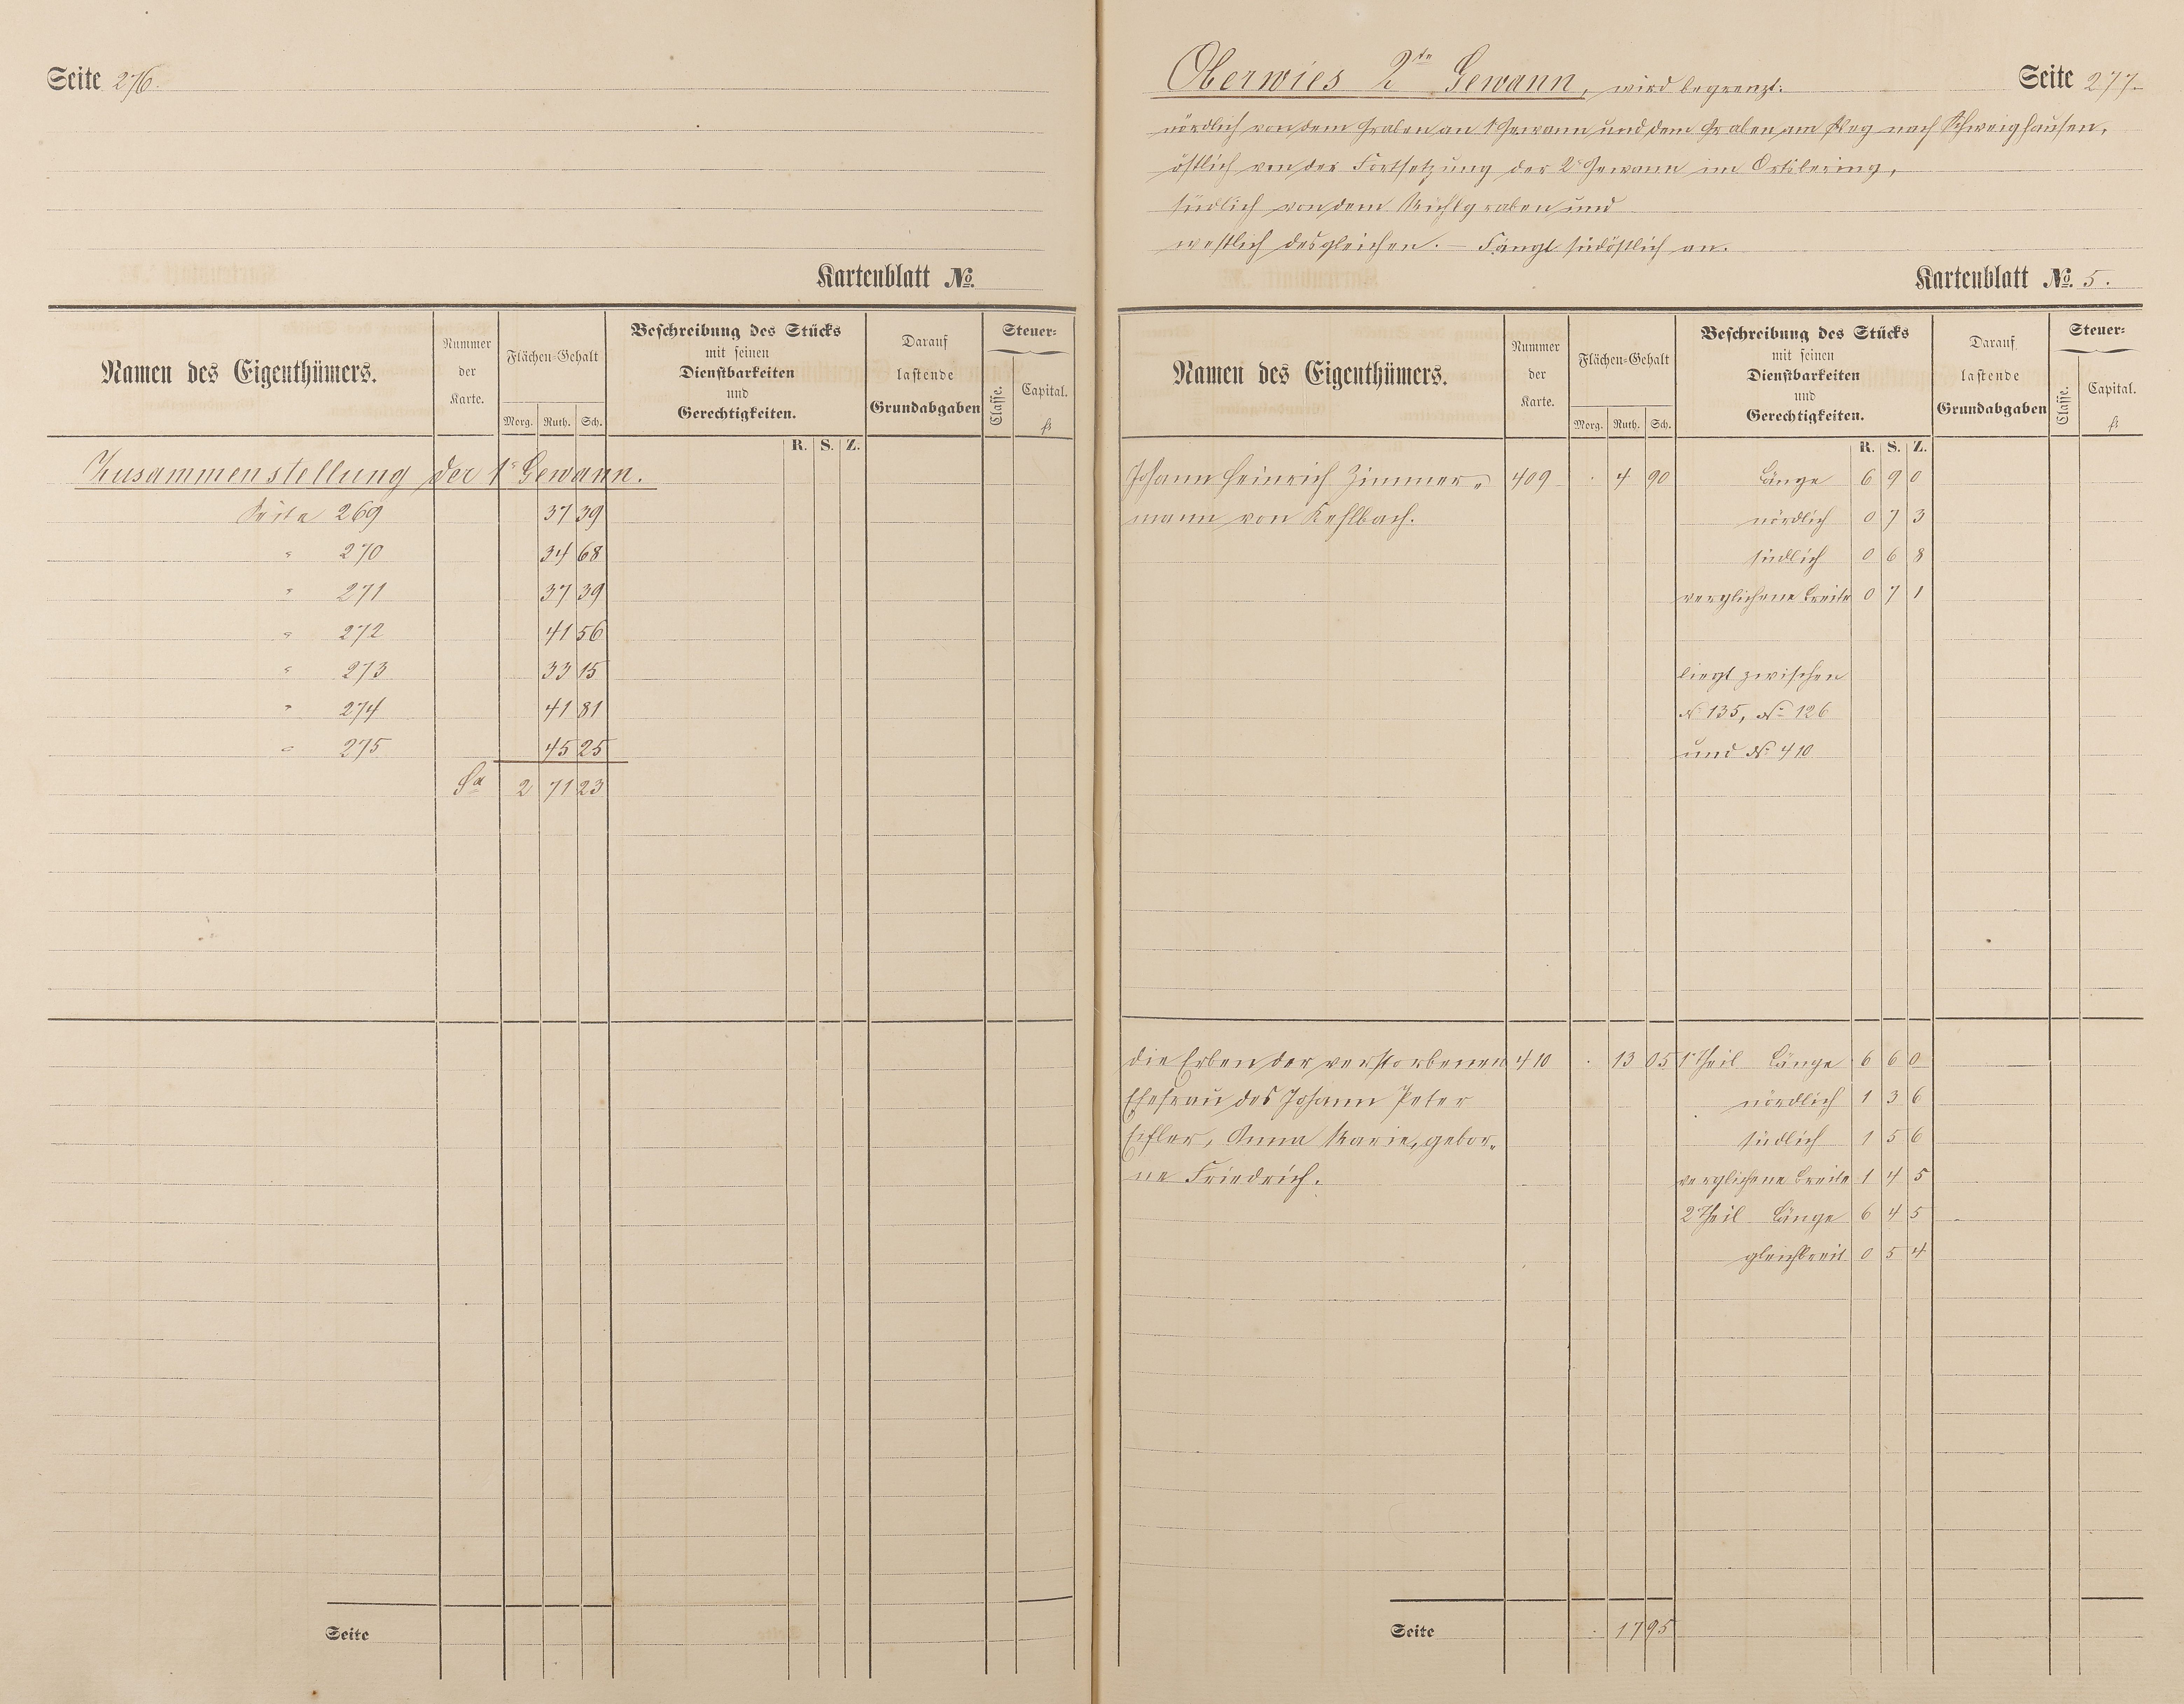 Seite 276.
Kartenblatt №.
Namen des Eigenthümers.
Nummer der Karte.
Flächen-Gehalt
Morg. Ruth. Sch.
Beschreibung des Stücks
mit seinen
Dienstbarkeiten
und
Gerechtigkeiten.
Darauf
lastende
Grundabgaben
Steuer-
Classe.
Capital.
fl
R. S. Z.
Zusammenstellung der 1r Gewann.
Seite 269 37 39
" 270 34 68
" 271 37 39
" 272 41 56
" 273 33 15
" 274 41 81
" 275 45 25
Sa 2 71 23
Seite
Oberwies 2te Gewann, wird begrenzt: Seite 277.
nördlich von dem Graben an 1 Gewann und dem Graben am Weg nach Schweighausen,
östlich von der Fortsetzung der 2r Gewann im Ortsbering,
südlich von dem Mühlgraben und
westlich desgleichen. – Fängt südöstlich an.
Kartenblatt №. 5.
Namen des Eigenthümers.
Nummer der Karte.
Flächen-Gehalt
Morg. Ruth. Sch.
Beschreibung des Stücks
mit seinen
Dienstbarkeiten
und
Gerechtigkeiten.
Darauf
lastende
Grundabgaben
Steuer-
Classe.
Capital.
fl
R. S. Z.
Johann Heinrich Zimmer- 409 . 4 90 Länge 6 9 0
mann von Kehlbach. nördlich 0 7 3
südlich 0 6 8
verglichene Breite 0 7 1
liegt zwischen
N. 135, No 126
und No 410
die Erben der verstorbenen 410 . 13 05 1 Theil Länge 6 6 0
Ehefrau des Johann Peter nördlich 1 3 6
Eifler, Anna Marie, gebor- südlich 1 5 6
ne Friedrich. verglichene Breite 1 4 5
2 Theil Länge 6 4 5
gleichbreit 0 5 4
Seite . 17 95